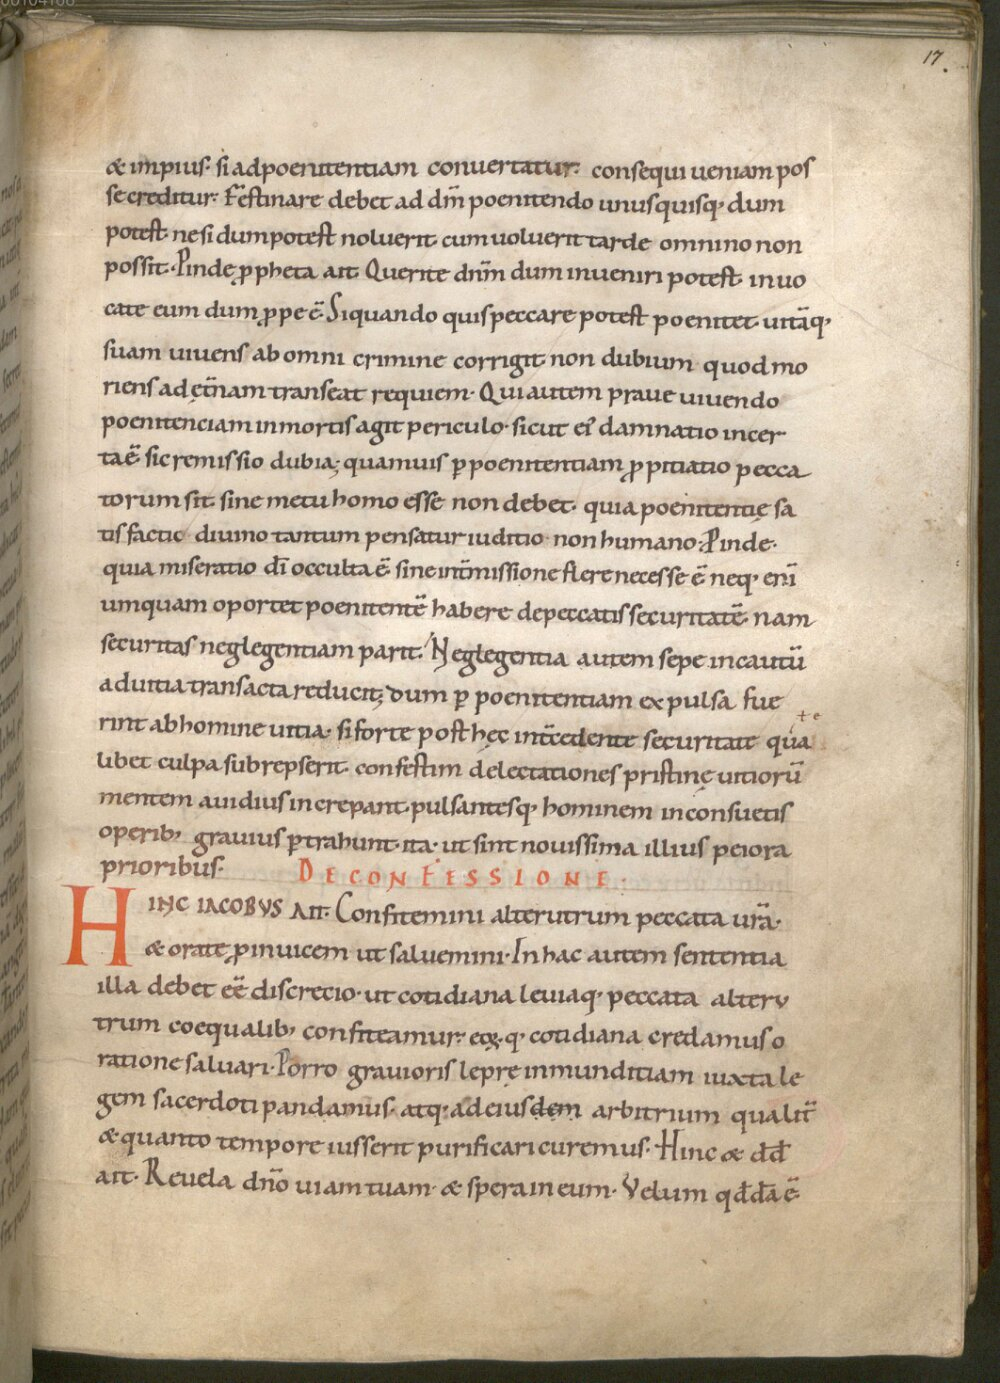 17.
& impius· si ad poenitentiam conuertatur· consequi ueniam pos
se creditur· Festinare debet ad dm̄ poenitendo unusquisq· dum
potest· ne si dum potest noluerit· cum uoluerit tarde omnino non
possit· Pinde ꝓpheta ait· Querite dnm̄ dum inueniri potest· inuo
cate eum dum ꝓpe ē· Siquando quis peccare potest poenitet· uitāq·
suam uiuens ab omni crimine corrigit· non dubium quod mo
riens ad et̄nam transeat requiem· Qui autem praue uiuendo
poenitenciam in mortis agit periculo· sicut ei' damnatio incer
ta ē· sic remissio dubia; quamuis ꝑ poenitentiam ꝓpitiatio pecca
torum sit· sine metu homo esse non debet· quia poenitentię sa
tisfactio diuino tantum pensatur iuditio· non humano· Pinde·
quia miseratio dī occulta ē· sine int̄missione flere necesse ē· neq· eni̅
umquam oportet poenitentē habere de peccatis securitatē· nam
securitas neglegentiam parit· Neglegentia autem sepe incautū
ad uitia transacta reducit; dum ꝑ poenitentiam expulsa fue
rint ab homine uitia· si forte post hęc int̄cedente securitate qua
libet culpa subrepserit· confestim delectationes pristinę uitiorū
mentem auidius increpant· pulsantesq· hominem in consuetis
operib; grauius ꝑtrahunt· ita· ut sint nouissima illius peiora
prioribus· DE CONFESSIONE·
HINC IACOBVS AIT· Confitemini alterutrum peccata ur̄a·
& orate ꝓ inuicem ut saluemini· In hac autem sententia
illa debet eē discrecio· ut cotidiana leuiaq· peccata alteru
trum coequalib; confiteamur· eoꝝq· cotidiana credamus o
ratione saluari· Porro grauioris leprę inmunditiam iuxta le
gem sacerdoti pandamus· atq· ad eiusdem arbitrium qualit̄
& quanto tempore iusserit purificari curemus· Hinc & dd̄
ait· Reuela dn̄o uiam tuam· & spera in eum· Velum qd̄dā ē